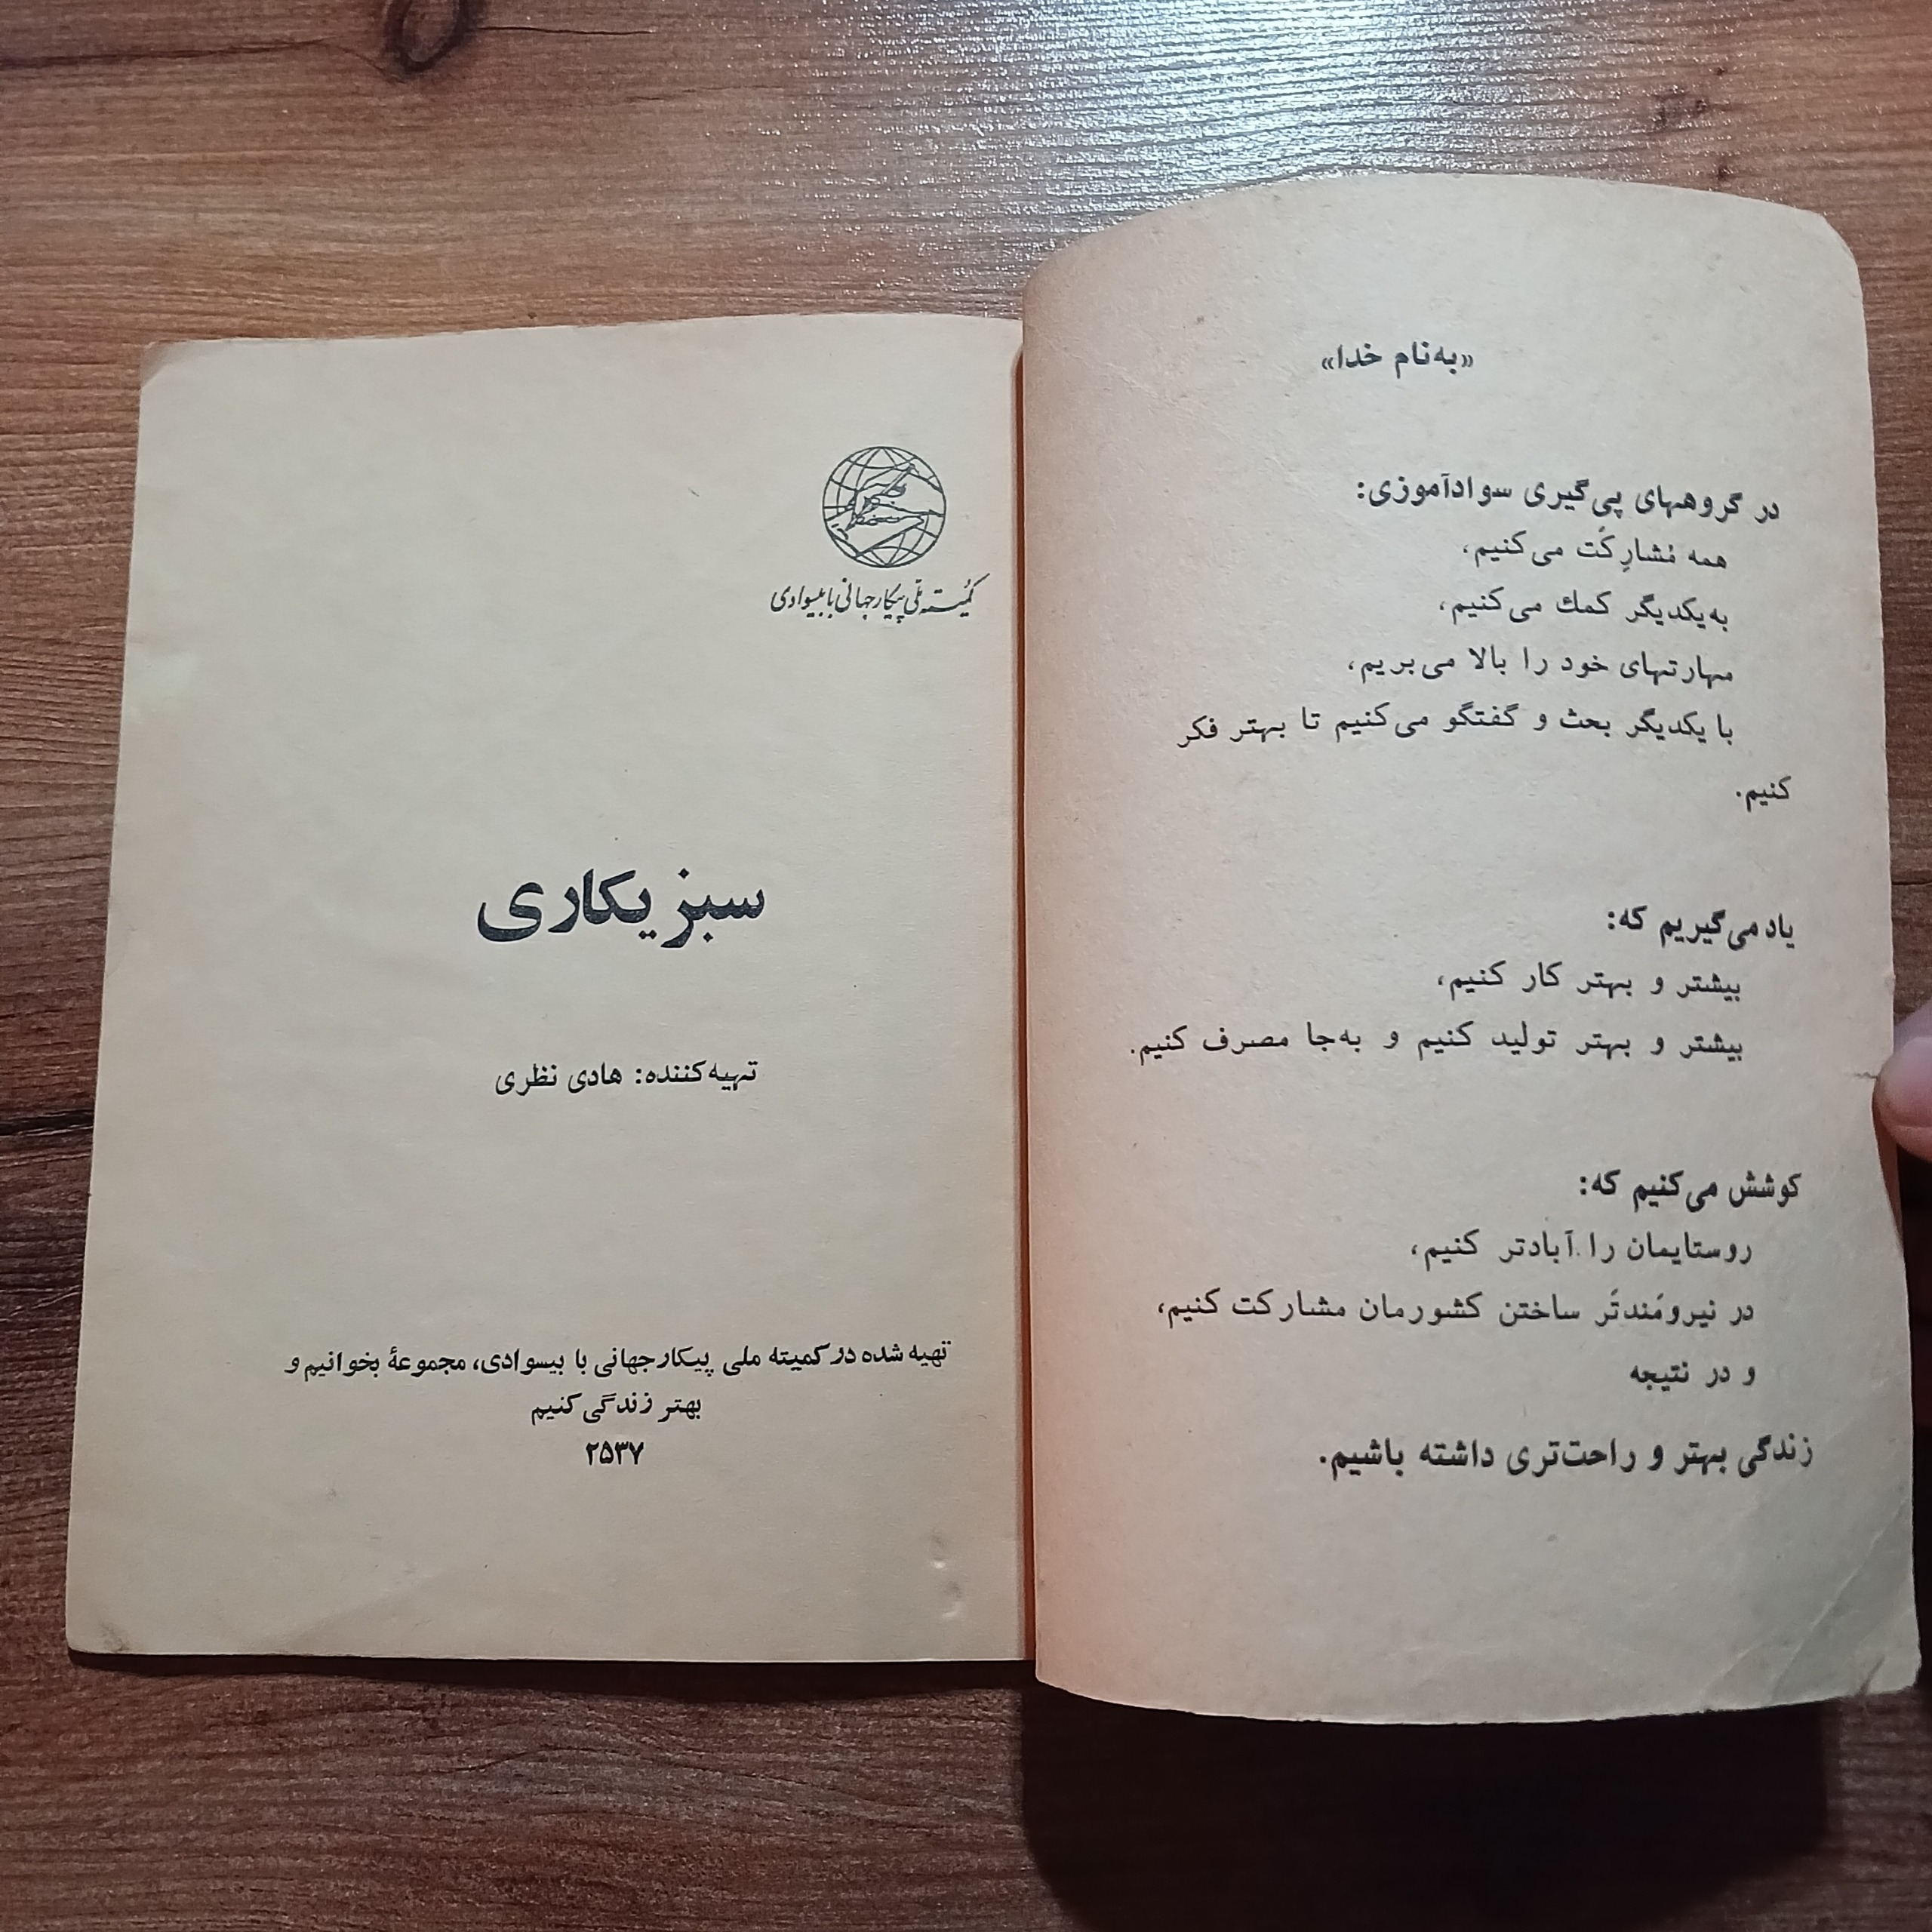 «به‌نام خدا»
در گروههای پی‌گیری سوادآموزی:
همه مُشارِکَت می‌کنیم،
به‌یکدیگر کمك می‌کنیم،
مهارتهای خود را بالا می‌بریم،
با یکدیگر بحث و گفتگو می‌کنیم تا بهتر فکر
کنیم.
یاد می‌گیریم که:
بیشتر و بهتر کار کنیم،
بیشتر و بهتر تولید کنیم و به‌جا مصرف کنیم.
کوشش می‌کنیم که:
روستایمان را آبادتر کنیم،
در نیرومَندتَر ساختن کشورمان مشارکت کنیم،
و در نتیجه
زندگی بهتر و راحت‌تری داشته باشیم.
کمیُته ملی پیکار جهانی با بیسوادی
سبزیکاری
تهیه‌کننده: هادی نظری
تهیه شده در کمیته ملی پیکار جهانی با بیسوادی، مجموعهٔ بخوانیم و
بهتر زندگی کنیم
۲۵۳۷